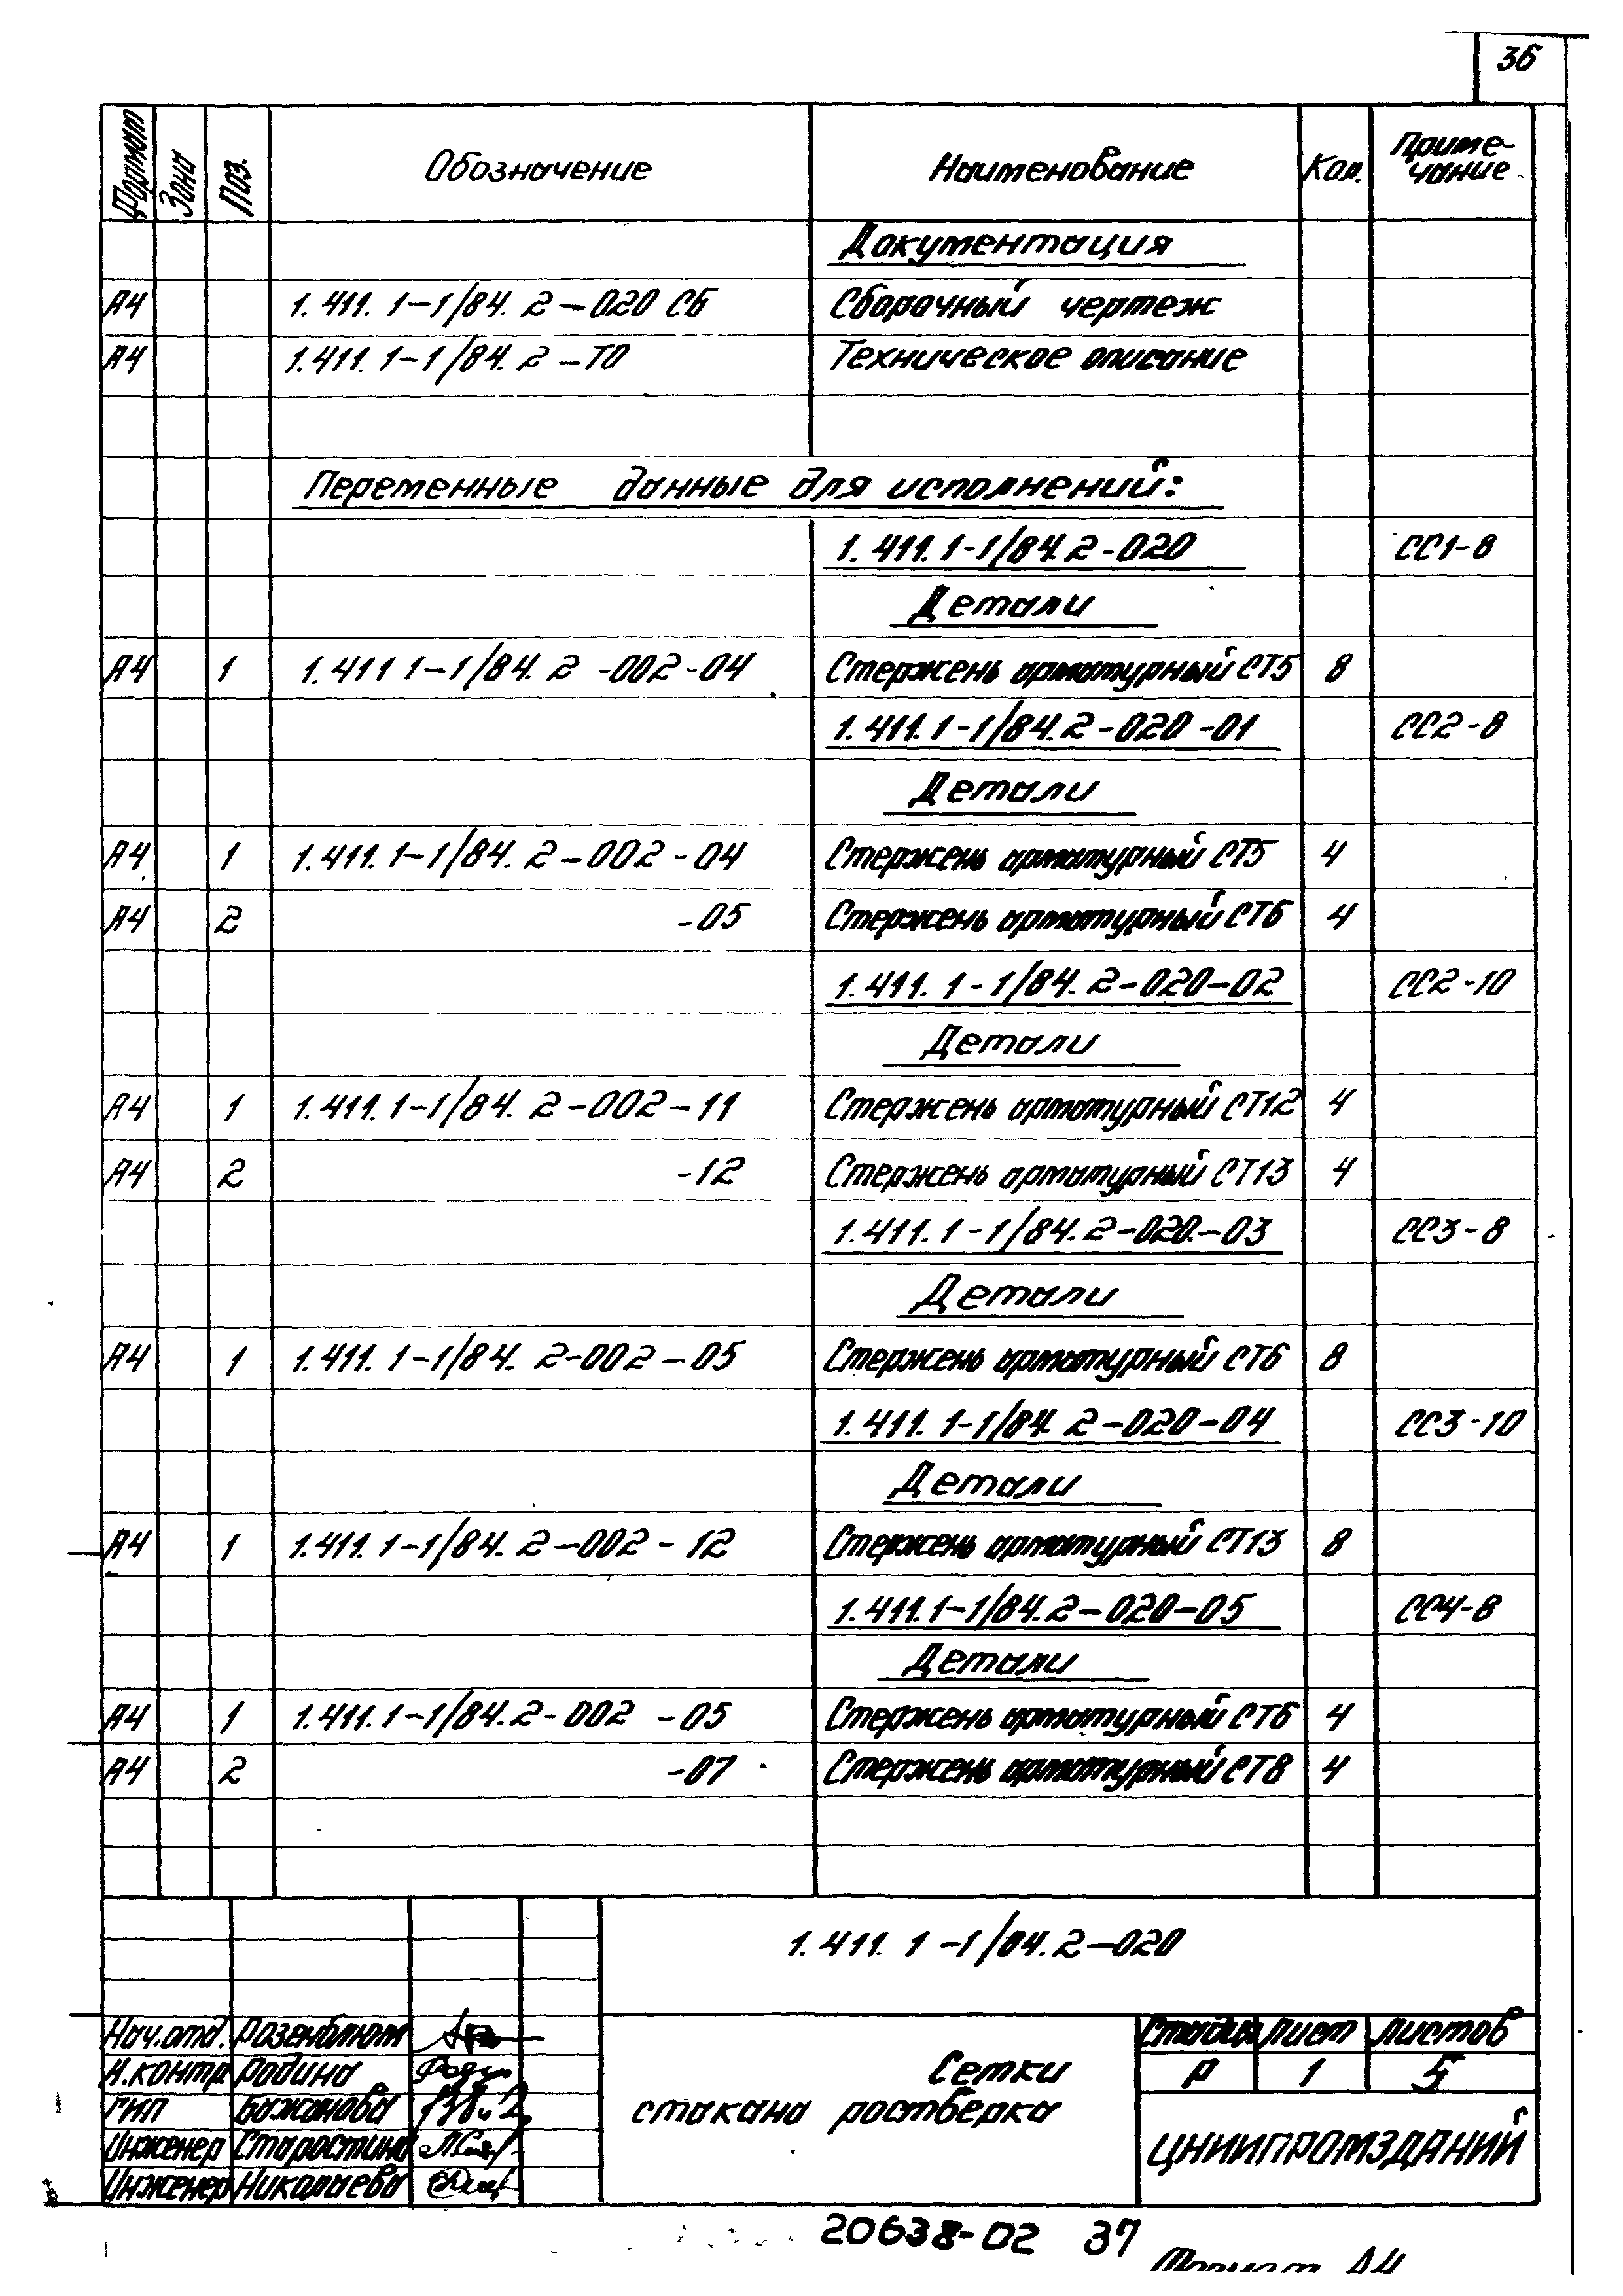 36
Формат Зона Поз. Обозначение Наименование Кол. Приме-
чание
Документация
А4 1.411.1-1/84.2-020 СБ Сборочный чертеж
А4 1.411.1-1/84.2-ТО Техническое описание
Переменные данные для исполнений:
1.411.1-1/84.2-020 СС1-8
Детали
А4 1 1.411 1-1/84.2-002-04 Стержень арматурный СТ5 8
1.411.1-1/84.2-020-01 СС2-8
Детали
А4 1 1.411.1-1/84.2-002-04 Стержень арматурный СТ5 4
А4 2 -05 Стержень арматурный СТ6 4
1.411.1-1/84.2-020-02 СС2-10
Детали
А4 1 1.411.1-1/84.2-002-11 Стержень арматурный СТ12 4
А4 2 -12 Стержень арматурный СТ13 4
1.411.1-1/84.2-020-03 СС3-8
Детали
А4 1 1.411.1-1/84.2-002-05 Стержень арматурный СТ6 8
1.411.1-1/84.2-020-04 СС3-10
Детали
А4 1 1.411.1-1/84.2-002-12 Стержень арматурный СТ13 8
1.411.1-1/84.2-020-05 СС4-8
Детали
А4 1 1.411.1-1/84.2-002-05 Стержень арматурный СТ6 4
А4 2 -07 Стержень арматурный СТ8 4
1.411.1-1/84.2-020
Нач.отд. Розенблюм
Н.контр Родина
ГИП Бажанова
Инженер Старостина
Инженер Николаева
Сетки
стакана ростверка
Стадия Лист Листов
Р 1 5
ЦНИИПРОМЗДАНИЙ
20638-02 37
Формат А4